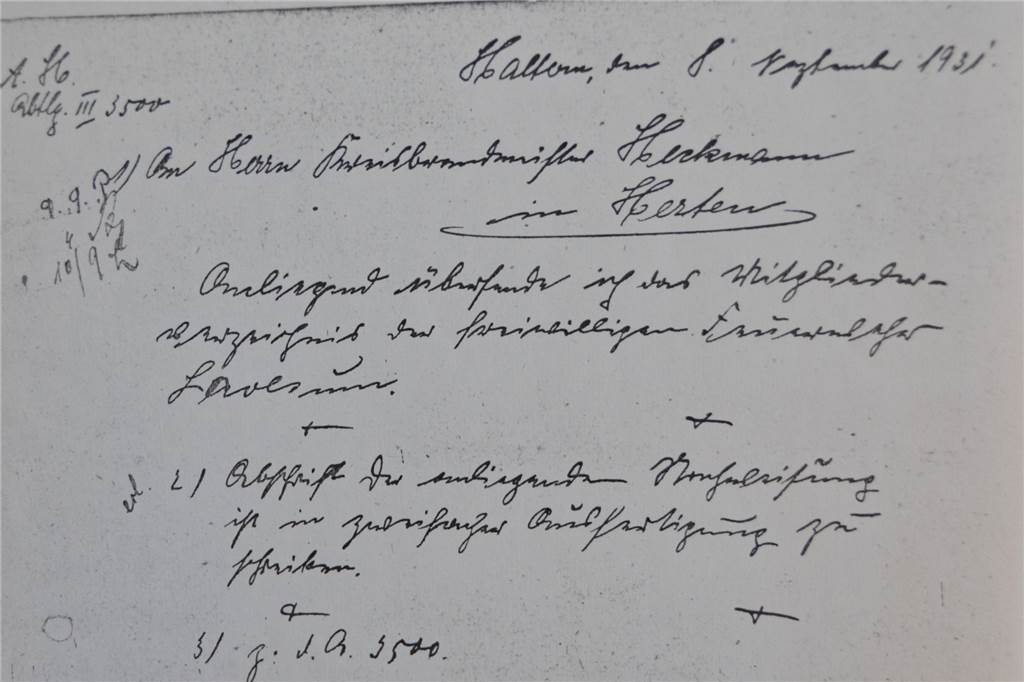 A. H.
Abtlg. III 3500
Haltern, den 8. September 1931.
1) An Herrn Kreisbrandmeister Heckmann
in Herten
9. 9.
10/9
Anliegend übersende ich das Mitglieder-
verzeichnis der freiwilligen Feuerwehr
Lavesum.
erl. 2) Abschrift der anliegenden Nachweisung
ist in zweifacher Ausfertigung zu
schreiben.
3) z. d. A. 3500.